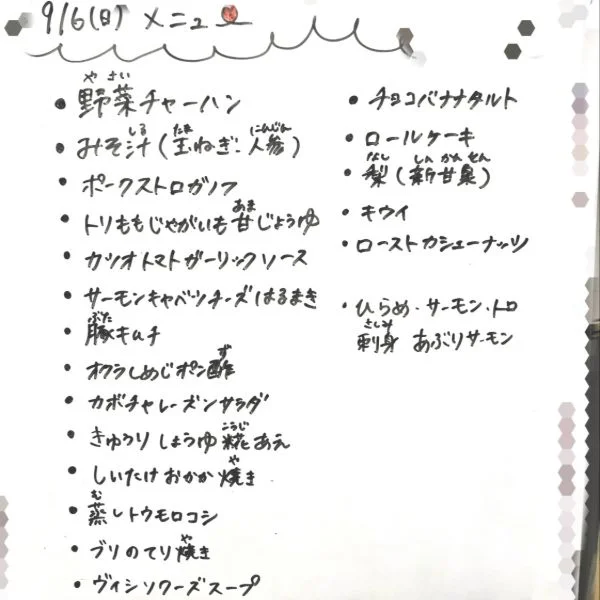 9/6(日) メニュー
やさい
• 野菜チャーハン
しる たま にんじん
• みそ汁(玉ねぎ、人参)
• ポークストロガノフ
あま
• トリももじゃがいも甘じょうゆ
• カツオトマトガーリックソース
• サーモンキャベツチーズはるまき
ぶた
•豚キムチ
ず
• オクラしめじポン酢
• カボチャレーズンサラダ
こうじ
• きゅうりしょうゆ糀あえ
や
• しいたけおかか焼き
む
• 蒸しトウモロコシ
や
• ブリのてり焼き
• ヴィシソワーズスープ
• チョコバナナタルト
• ロールケーキ
なし しんかんせん
• 梨(新甘泉)
• キウイ
• ローストカシューナッツ
• ひらめ・サーモン・トロ
さしみ
刺身 あぶりサーモン